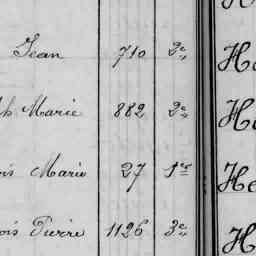 Jean 710 2e
ph Marie 882 2e
ois Marie 27 1er
ois Pierre 1126 3e